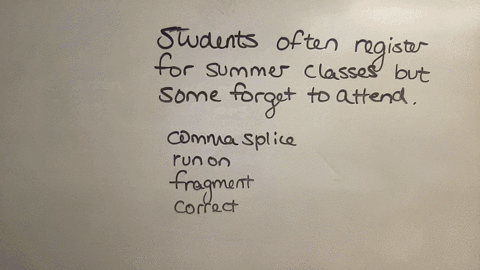 Students often register
for summer classes but
some forget to attend.
comma splice
run on
fragment
correct